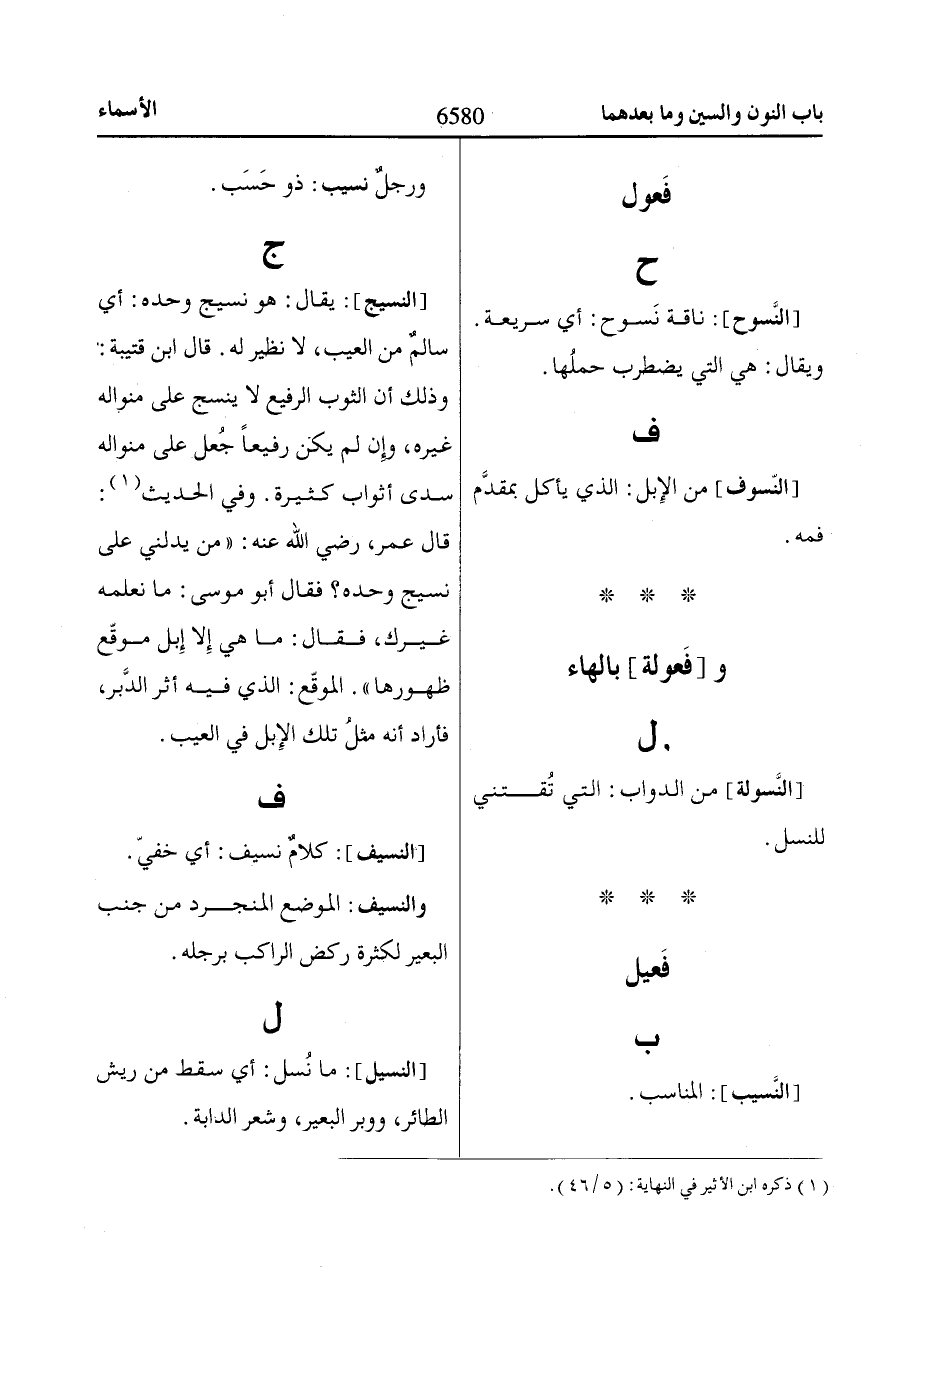 باب النون والسين وما بعدهما
6580
الأسماء
فَعول
ح
[النَّسوح]: ناقة نَسوح: أي سريعة.
ويقال: هي التي يضطرب حملُها.
ف
[النّسوف] من الإبل: الذي يأكل بمقدَّم
فمه.
* * *
و [فَعولة] بالهاء
ل
[النَّسولة] من الدواب: التي تُقتني
للنسل.
* * *
فَعيل
ب
[النَّسيب]: المناسب.
ورجلٌ نسيب: ذو حَسَب.
ج
[النسيج]: يقال: هو نسيج وحده: أي
سالمٌ من العيب، لا نظير له. قال ابن قتيبة:
وذلك أن الثوب الرفيع لا ينسج على منواله
غيره، وإن لم يكن رفيعاً جُعل على منواله
سدى أثواب كثيرة. وفي الحديث(١):
قال عمر، رضي الله عنه: «من يدلني على
نسيج وحده؟ فقال أبو موسى: ما نعلمه
غيرك، فقال: ما هي إلا إبل موقّع
ظهورها». الموقّع: الذي فيه أثر الدَّبر،
فأراد أنه مثلُ تلك الإبل في العيب.
ف
[النسيف]: كلامٌ نسيف: أي خفيّ.
والنسيف: الموضع المنجرد من جنب
البعير لكثرة ركض الراكب برجله.
ل
[النسيل]: ما نُسل: أي سقط من ريش
الطائر، ووبر البعير، وشعر الدابة.
(١) ذكره ابن الأثير في النهاية: (٥/٤٦).